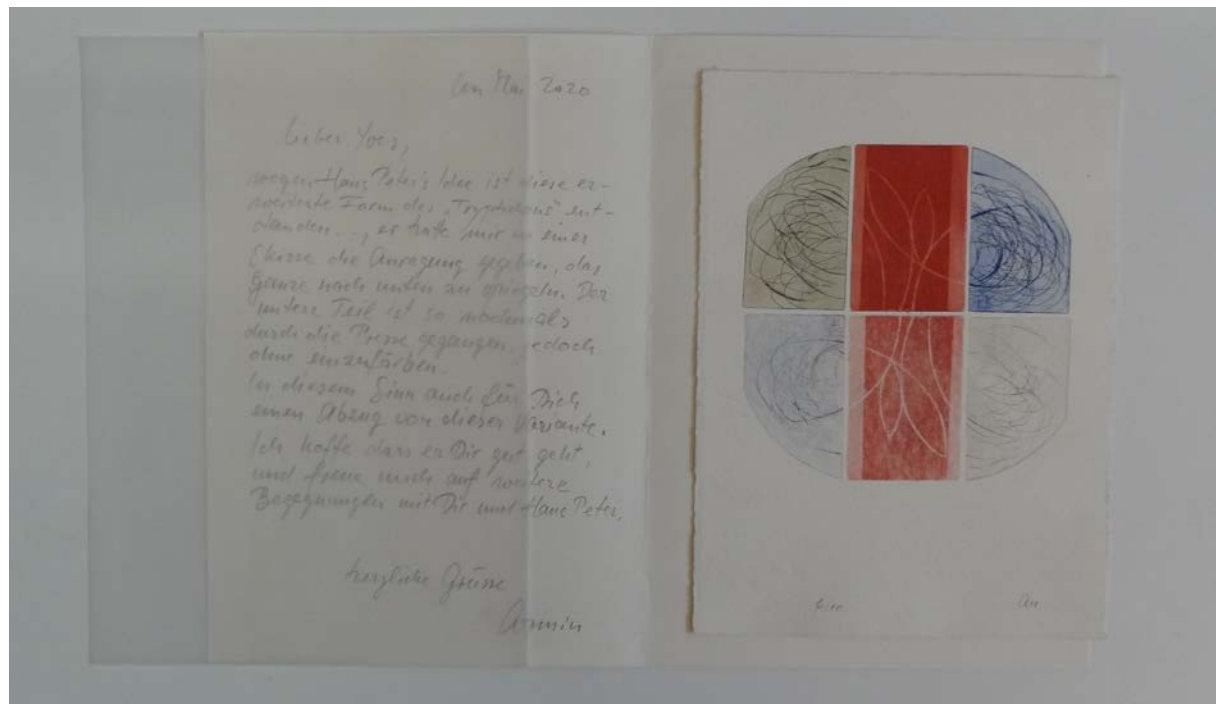 Mai 2020
Lieber Yves,
wegen Hans Peter's Idee ist diese er-
weiterte Form des „Tryptichons" ent-
standen..., er hate mir in einer
Skizze die Anregung gegeben, das
Ganze nach unten zu spiegeln. Der
untere Teil ist so nochmals
durch die Presse gegangen, jedoch
ohne einzufärben.
In diesem Sinn auch für Dich
einen Abzug von dieser Variante.
Ich hoffe dass er Dir gut geht,
und freue mich auf weitere
Begegnungen mit Dir und Hans Peter,
herzliche Grüsse
Armin